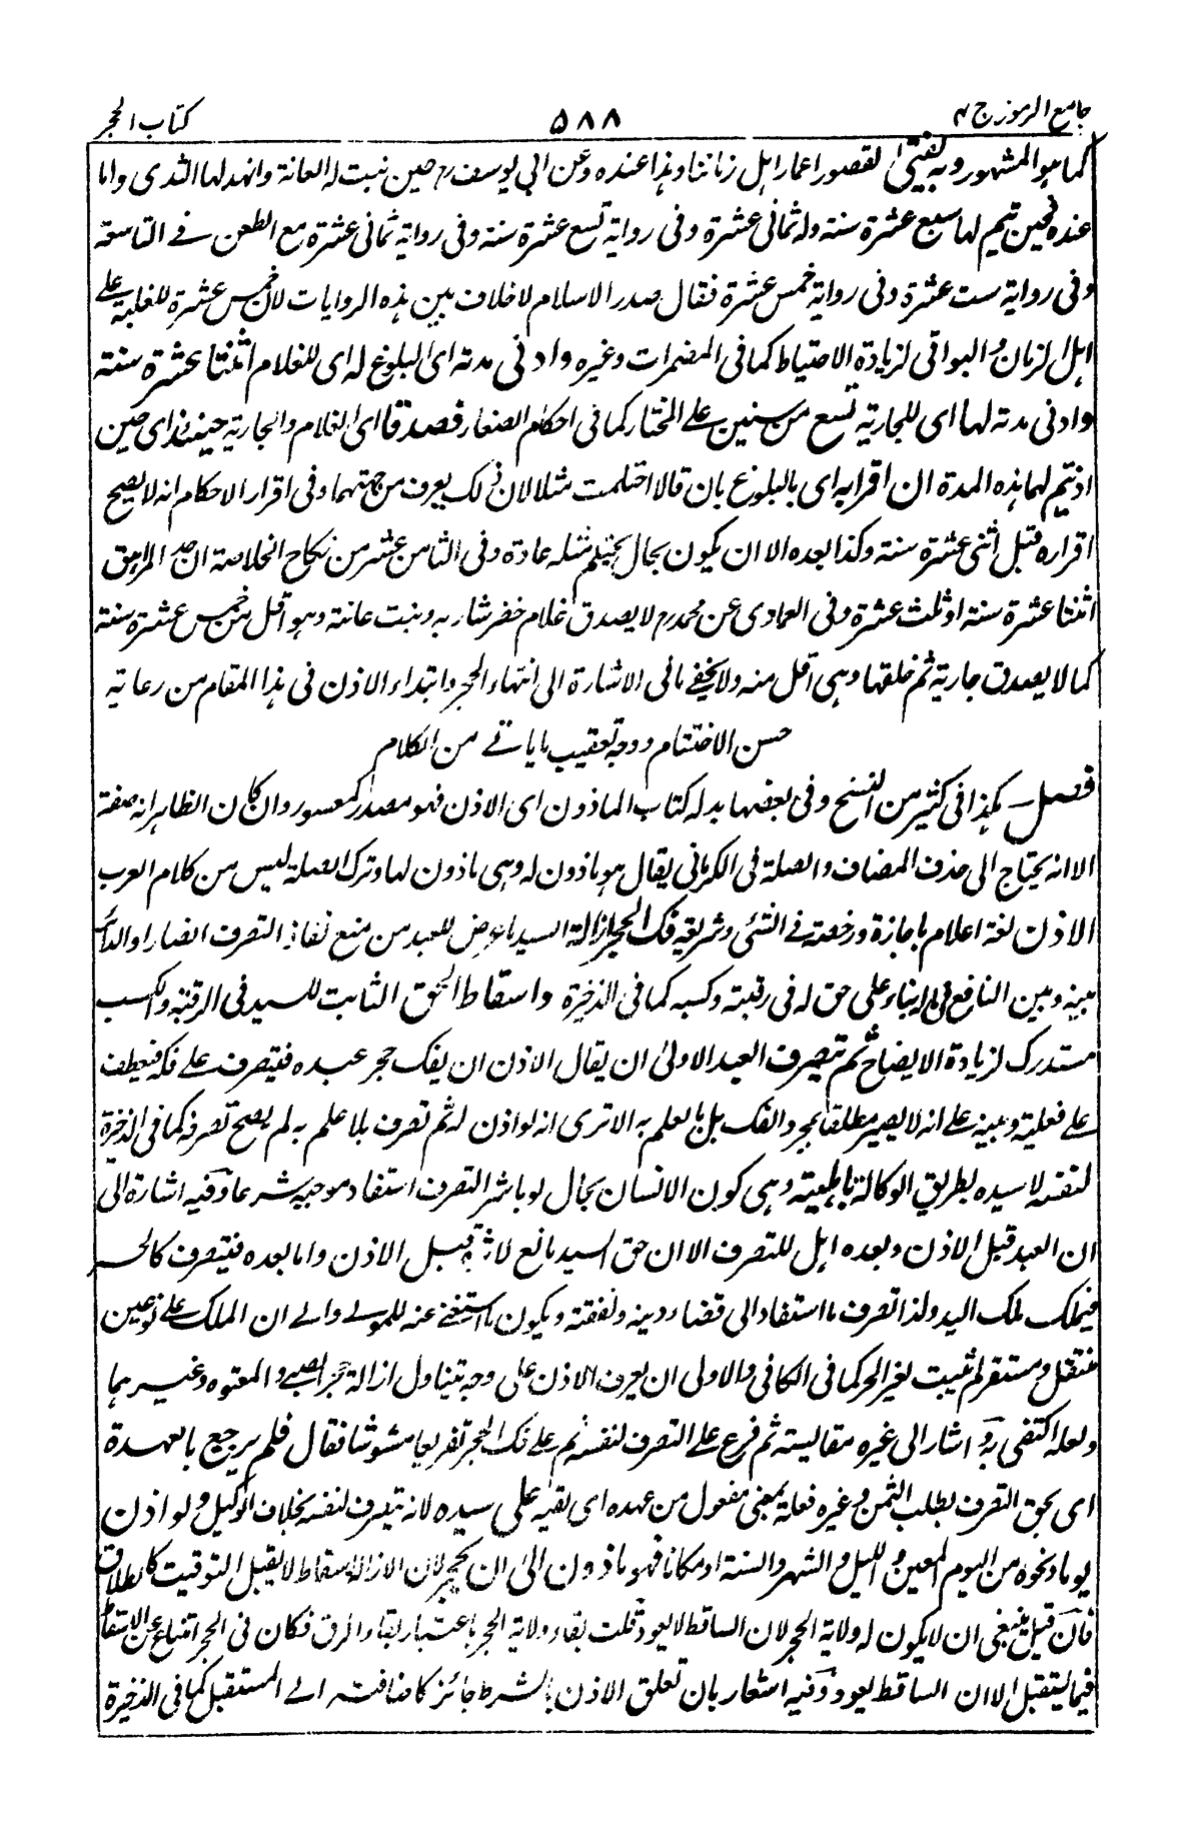 جامع الرموز ج ٤
٥٨٨
كتاب الحجر
كما هو المشهور وبه يفتى لقصور اعمار اهل زماننا وهذا عنده وعن ابي يوسف رح حين نبت له العانة وانهد لها الثدى واما
عنده فحين يتم لها سبع عشرة سنة وله ثمانى عشرة وفى رواية تسع عشرة سنة وفى رواية ثمانى عشرة مع الطعن فے التاسعة
وفى رواية ست عشرة وفى رواية خمس عشرة فقال صدر الاسلام لا خلاف بين هذه الروايات لان خمس عشرة للغلبة علے
اهل الزمان والبواقى لزيادة الاحتياط كما فى المضمرات وغيره وادنى مدته اى البلوغ له اى للغلام اثنتا عشرة سنة
وادنى مدته لها اى للجارية تسع من سنين علے المختار كما فى احكام الصغار فصدقا اى الغلام والجارية حينئذ اى حين
اذ يتم لهما هذه المدة ان اقرا به اى بالبلوغ بان قالا احتلمت مثلا لان ذلك يعرف من جهتهما وفى اقرار الاحكام انه لا يصح
اقراره قبل اثنى عشرة سنة وكذا بعده الا ان يكون بحال يحتلم مثله عادة وفى الثامن عشر من نكاح الخلاصة ان حد المراهق
اثنتا عشرة سنة او ثلث عشرة وفى العمادى عن محمد رح لا يصدق غلام خضر شاربه ونبت عانته وهو اقل من خمس عشرة سنة
كما لا يصدق جارية ثم خلقها وهى اقل منه ولا يخفے ما فى الاشارة الى انتهاء الحجر وابتداء الاذن فى هذا المقام من رعاية
حسن الاختتام ووجه تعقيب ما ياتے من الكلام
فصل هكذا فى كثير من النسخ وفى بعضها بدله كتاب الماذون اى الاذن فهو مصدر كمعسور وان كان الظاهر انه صفة
الا انه يحتاج الى حذف المضاف والصلة فى الكرمانى يقال هو ماذون له وهى ماذون لها وترك الصلة ليس من كلام العرب
الاذن لغة اعلام باجازة ورخصة فے الشئ وشريعة فك الحجر ازالة السيد ما عرض للعبد من منع نفاذ التصرف الضار او الدائر
بينه وبين النافع فى ماله بناء على حق له فى رقبته وكسبه كما فى الذخيرة واسقاط الحق الثابت للسيد فى الرقبة والكسب
مستدرك لزيادة الايضاح ثم يتصرف العبد الاولى ان يقال الاذن ان يفك حجر عبده فيتصرف علے فكه فيعطف
علے فعلية وبينه علے انه لا يصير مطلقا بمجرد الفك بل بالعلم به الا ترى انه لو اذن له ثم تصرف بلا علم به لم يصح تصرفه كما فى الذخيرة
لنفسه لا سيده بطريق الوكالة باهليته وهى كون الانسان بحال لو باشر التصرف استفاد موجبه شرعا وفيه اشارة الى
ان العبد قبل الاذن وبعده اهل للتصرف الا ان حق السيد مانع لاثره قبل الاذن واما بعده فيتصرف كالحر
فيملك ملك اليد ولذا تصرف ما استفاد الى قضاء دينه ونفقته ويكون ما استغنے عنه للمولے والے ان الملك علے نوعين
منتقل ومستقر لم يثبت لغير الحر كما فى الكافى والاولى ان يعرف الاذن على وجه يتناول ازالة حجر الصبے والمعتوه وغيرهما
ولعله اكتفى به واشار الى غيره مقايسة ثم فرع علے التصرف لنفسه ثم علے فك الحجر تفريعا مشوشا فقال فلم يرجع بالعهدة
اى بحق التصرف بطلب الثمن وغيره فعلة بمعنى مفعول من عهده اى لقيه على سيده لانه يتصرف لنفسه بخلاف الوكيل ولو اذن
يوما ونحوه من اليوم المعين والليل والشهر والسنة او مكانا فهو ماذون الى ان يحجر لان الازالة اسقاط لا يقبل التوقيت كالطلاق
فان قيل ينبغى ان لا يكون له ولاية الحجر لان الساقط لا يعود قلت بقاء ولاية الحجر باعتبار بقاء الرق فكان فى الحجر امتناع عن الاسقاط
فيما يستقبل لا ان الساقط يعود وفيه اشعار بان تعلق الاذن بالشرط جائز كاضافته الے المستقبل كما فى الذخيرة